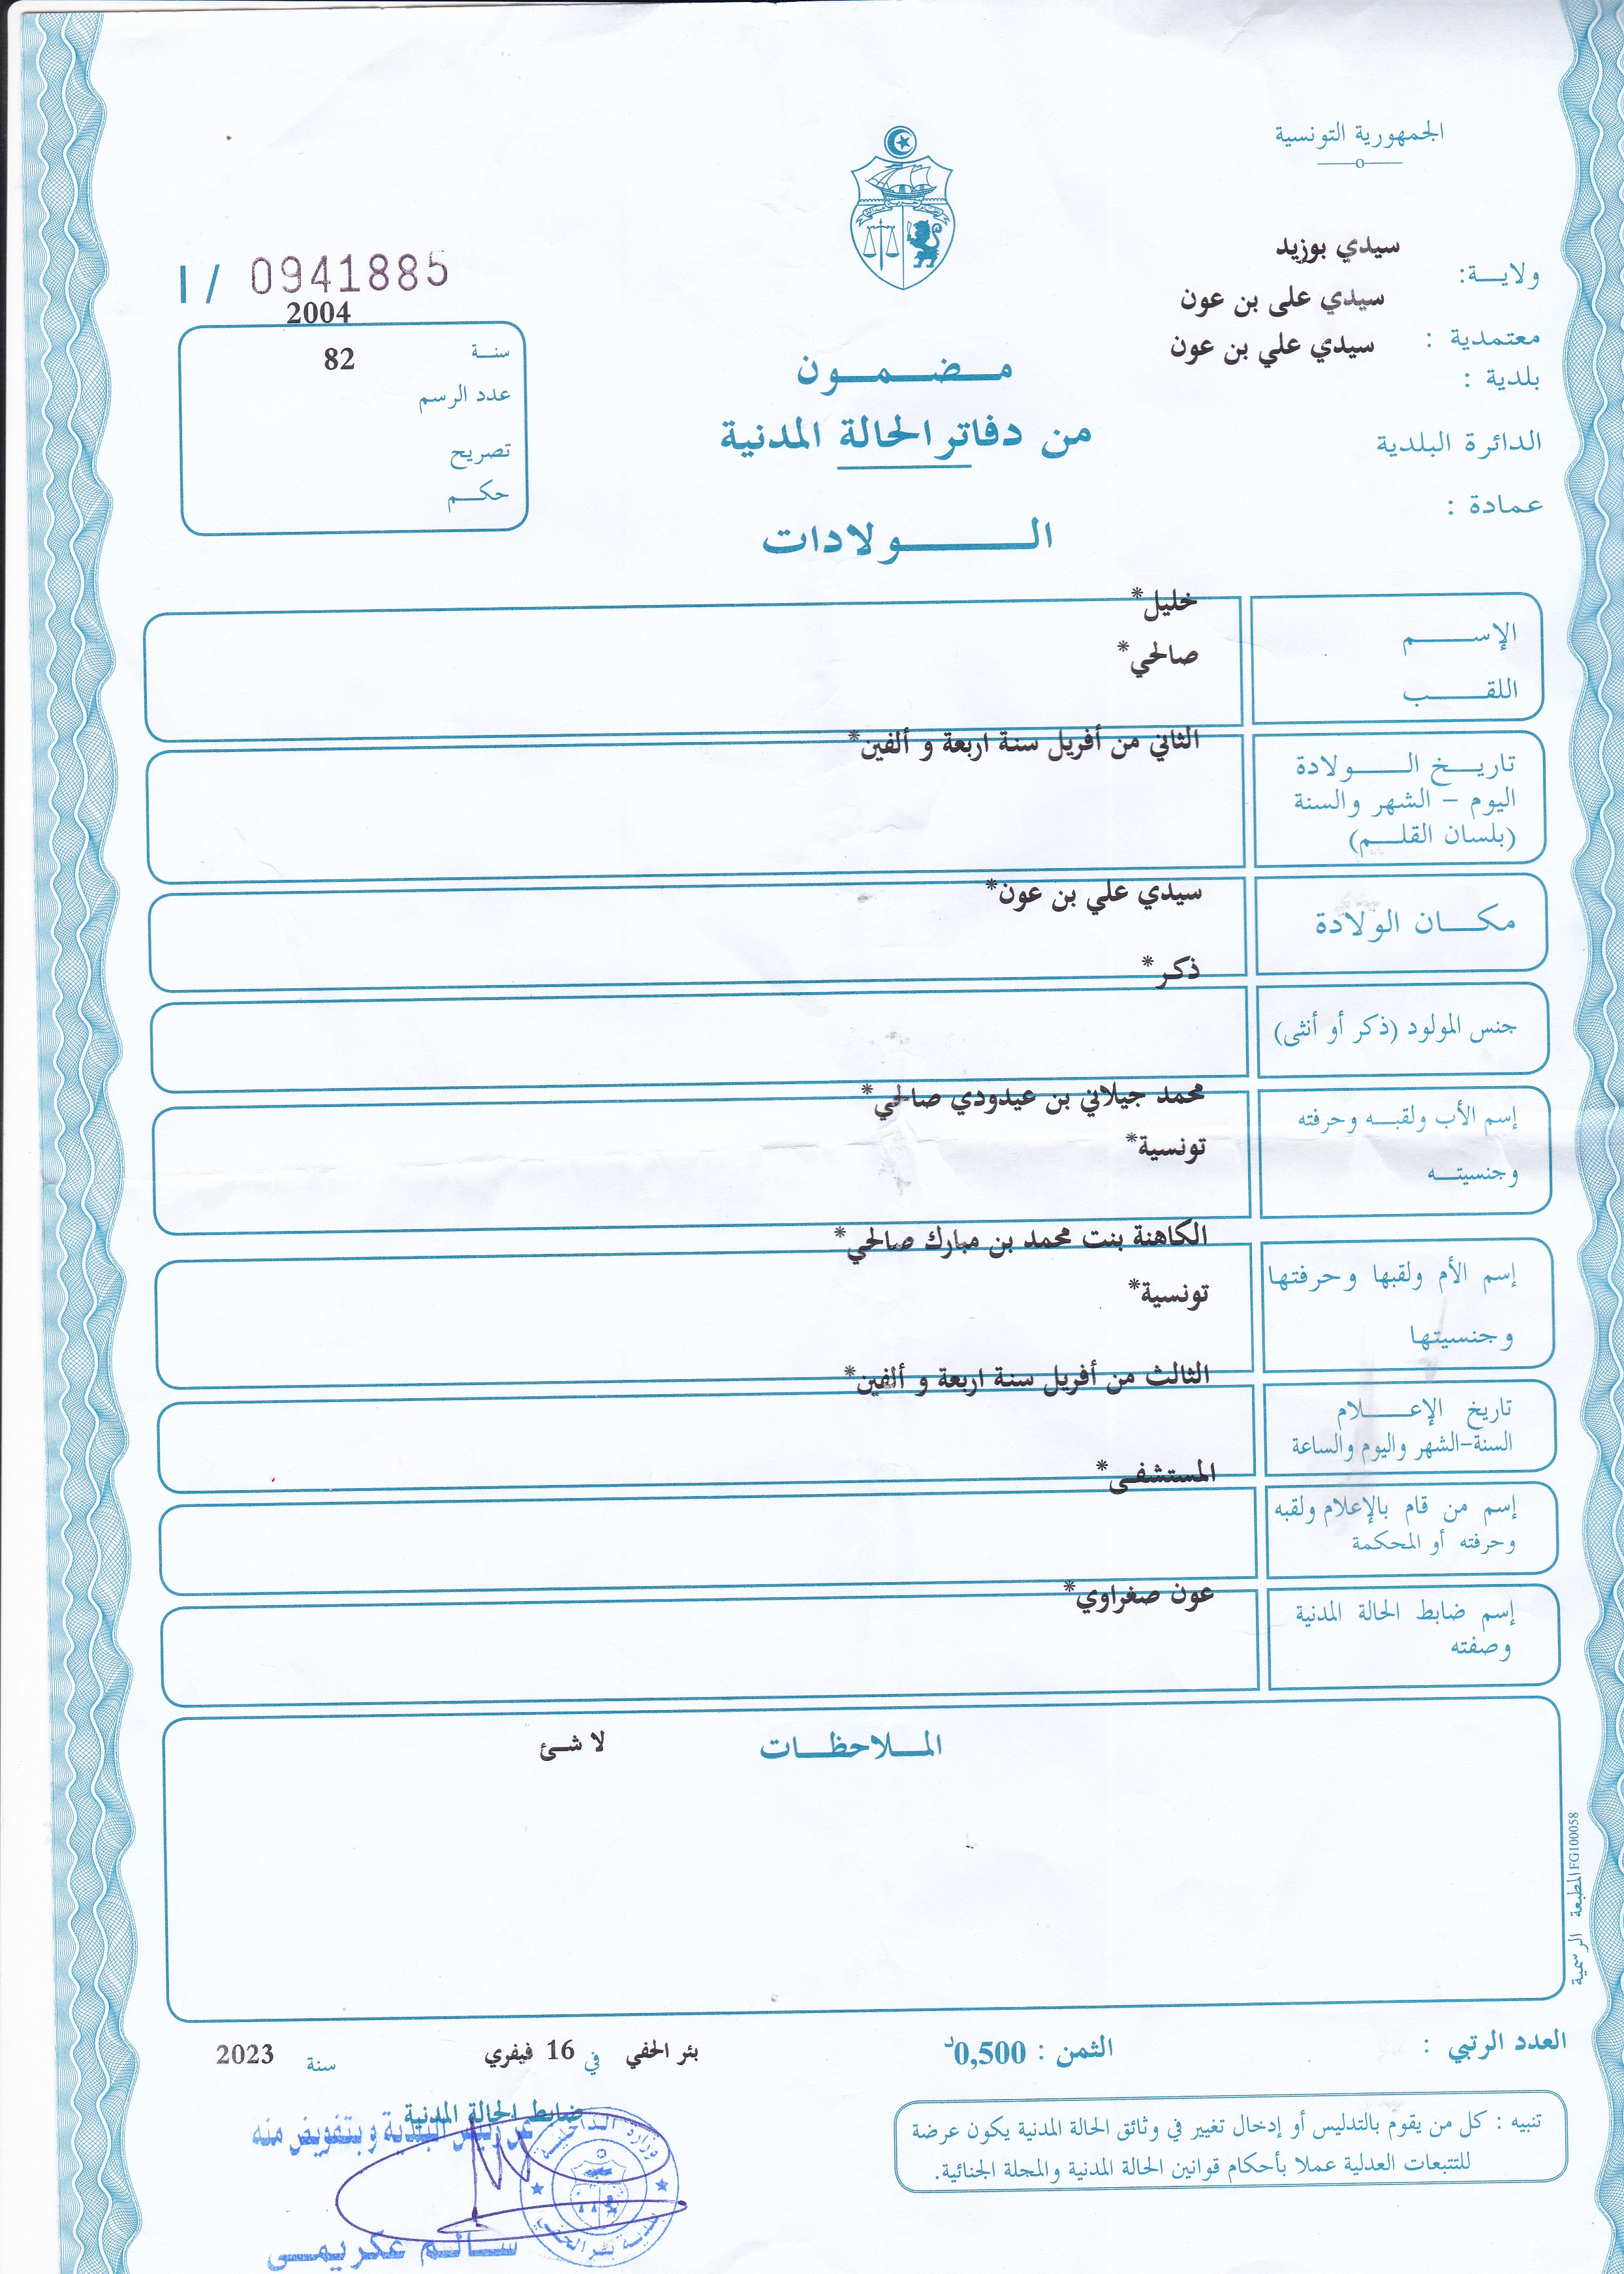 الجمهورية التونسية
ولايـــة: سيدي بوزيد
معتمدية : سيدي على بن عون
بلدية : سيدي علي بن عون
الدائرة البلدية
عمادة :
I / 0941885
سنــة 2004
عدد الرسم 82
تصريح
حكــم
مـضـمـون
من دفاتر الحالة المدنية
الـــولادات
الإســـم خليل*
اللقـــب صالحي*
تاريــخ الـــولادة الثاني من أفريل سنة اربعة و ألفين*
اليوم – الشهر والسنة
(بلسان القلــم)
مكـــان الولادة سيدي علي بن عون*
جنس المولود (ذكر أو أنثى) ذكر*
إسم الأب ولقبــه وحرفته محمد جيلاني بن عيدودي صالحي*
وجنسيتــه تونسية*
إسم الأم ولقبها وحرفتها الكاهنة بنت محمد بن مبارك صالحي*
وجنسيتها تونسية*
تاريخ الإعـــلام الثالث من أفريل سنة اربعة و ألفين*
السنة-الشهر واليوم والساعة
إسم من قام بالإعلام ولقبه المستشفى*
وحرفته أو المحكمة
إسم ضابط الحالة المدنية عون صغراوي*
وصفته
المــلاحظــات
لا شئ
المطبعة الرسمية FG100058
العدد الرتبي :
الثمن : 0,500د
بئر الحفي في 16 فيفري سنة 2023
ضابط الحالة المدنية
عن رئيس البلدية وبتفويض منه
وزارة الداخلية
بلدية بئر الحفي
سـالـم عكريمـي
تنبيه : كل من يقوم بالتدليس أو إدخال تغيير في وثائق الحالة المدنية يكون عرضة
للتتبعات العدلية عملا بأحكام قوانين الحالة المدنية والمجلة الجنائية.